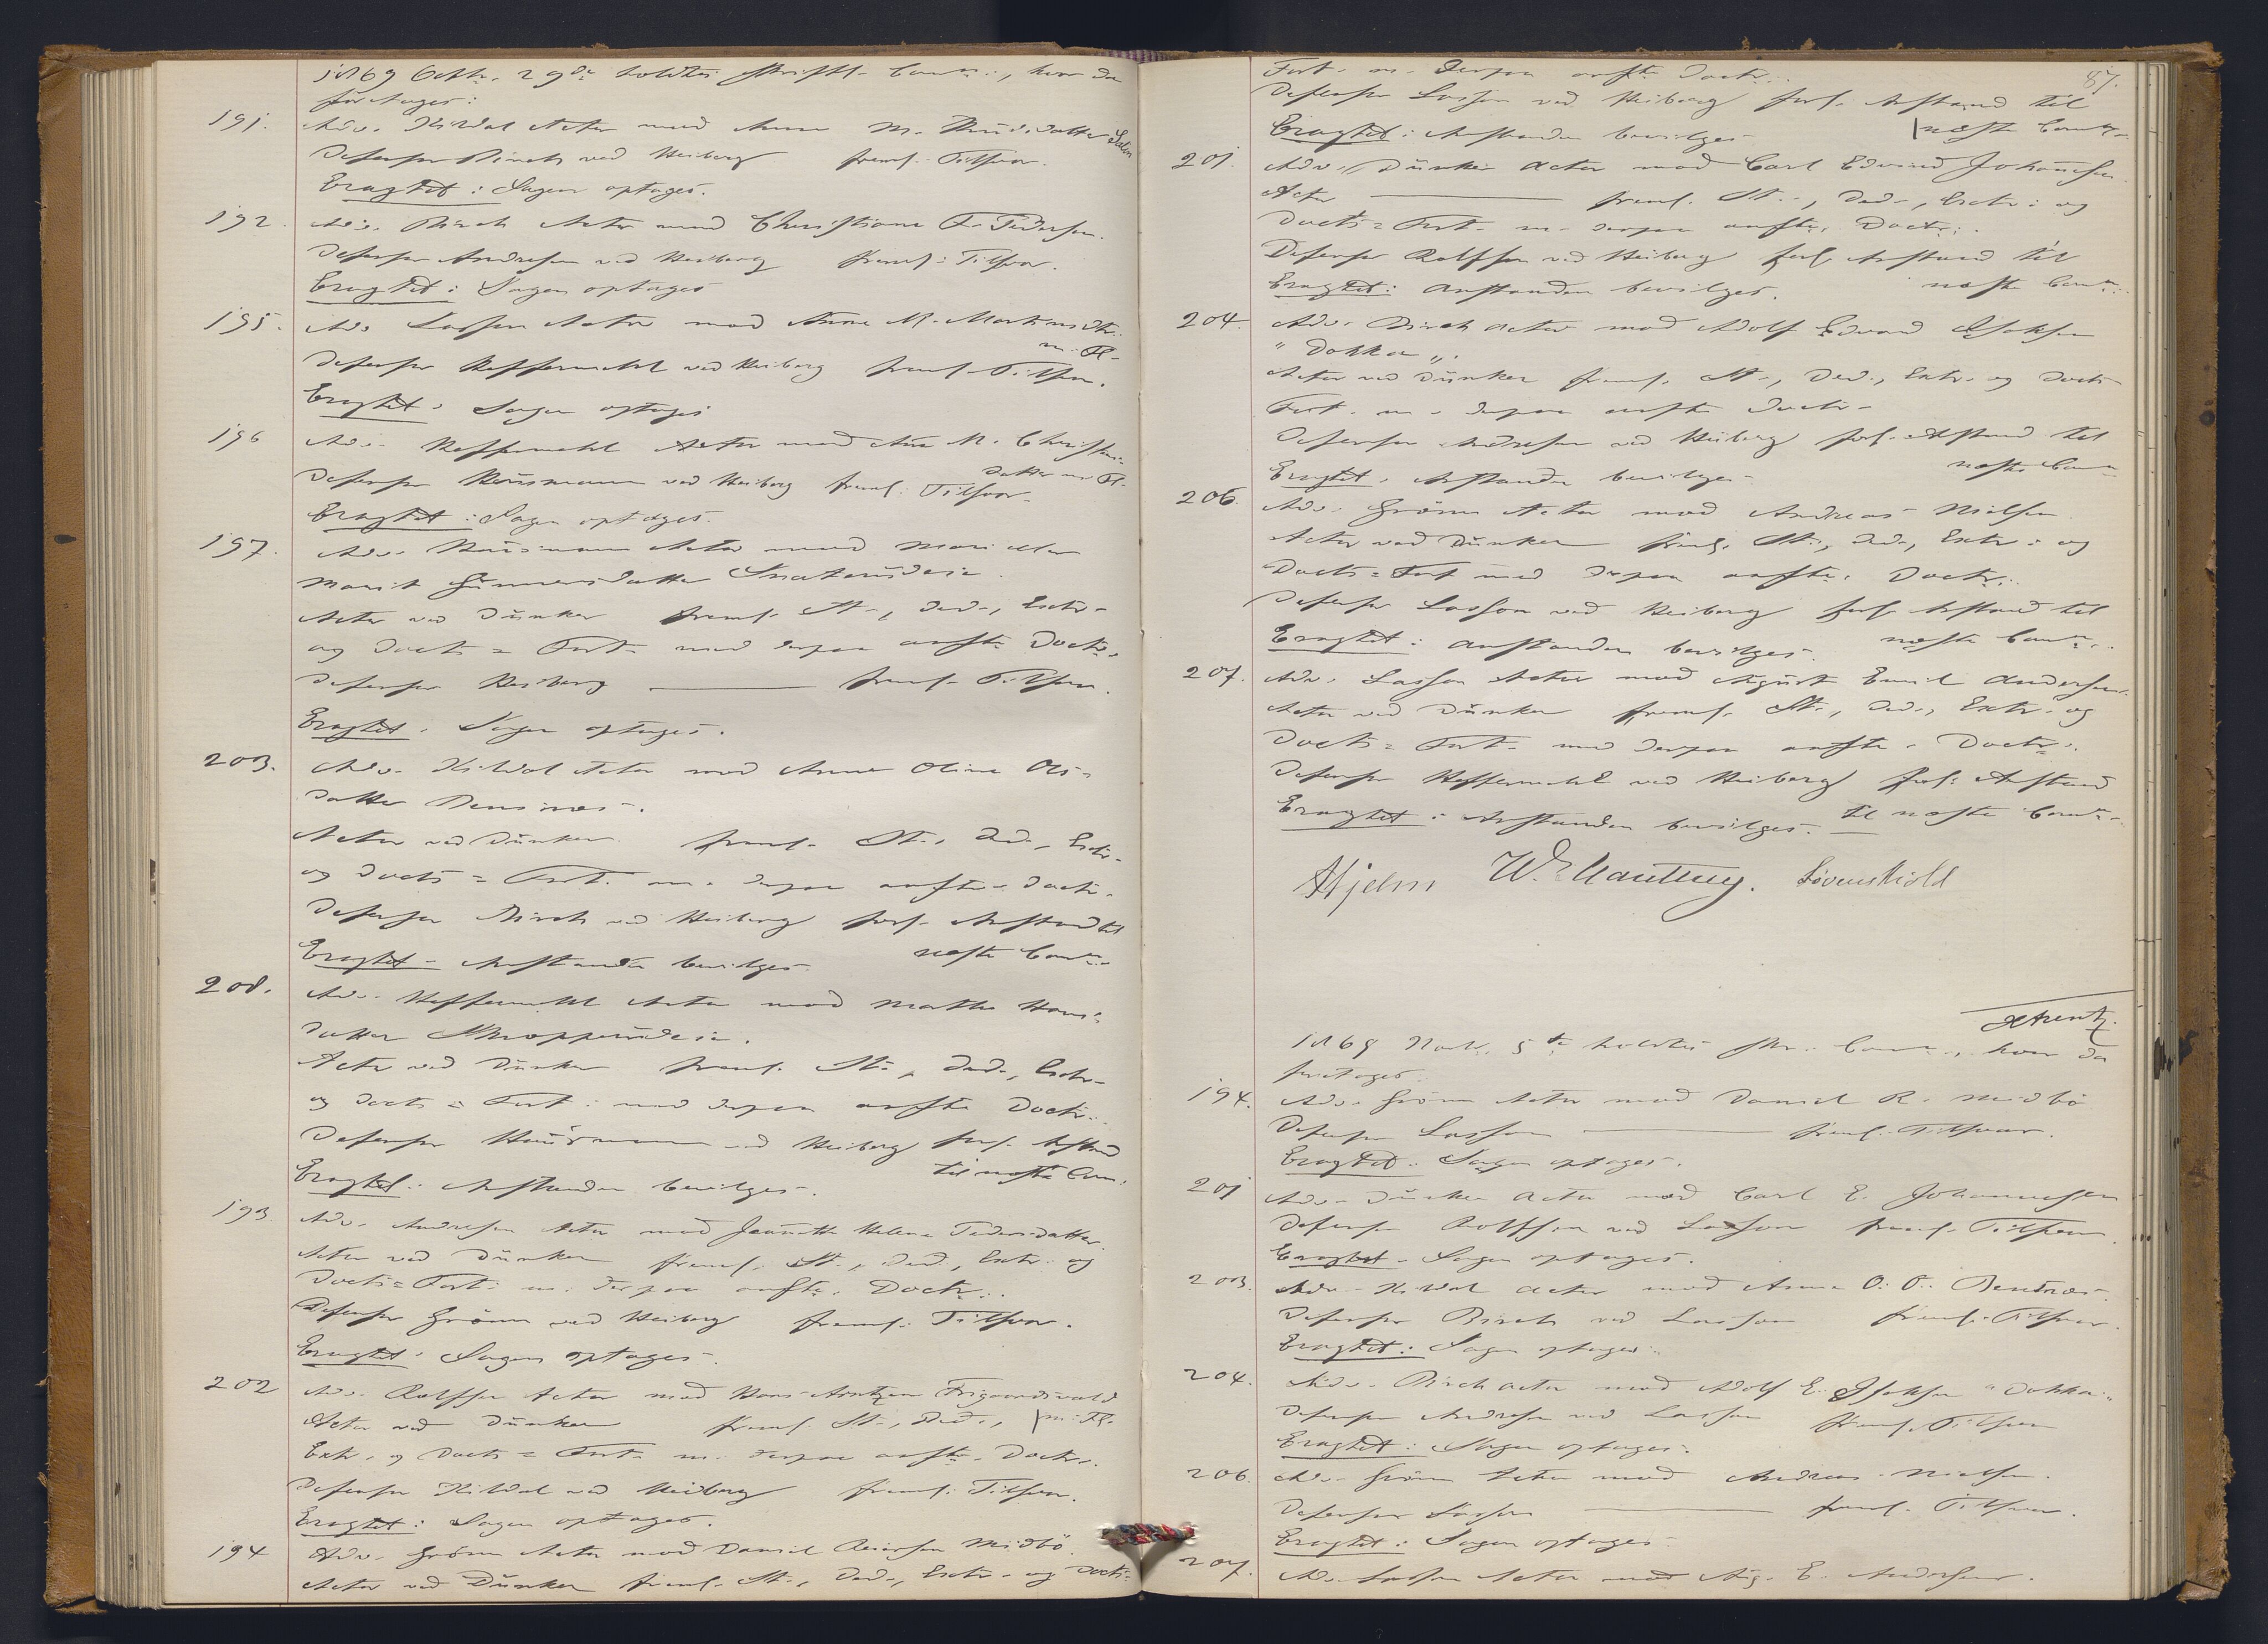 1869 Octbr. 29de holdtes skriftl. Conn:, hvor da
foretages:
191. Adv. Kildal Actor mod Anne M. Knudsdatter
Defensor Birch ved Heiberg freml. Tilsvar.
Eragtet: Sagen optages.
192. Adv. Birch Actor mod Christiane F. Pedersen.
Defensor Andresen ved Heiberg freml: Tilsvar.
Eragtet: Sagen optages
195. Adv. Lasson Actor mod Anne M. Mortensdtr.
m. Fl.
Defensor Heffermehl ved Heiberg freml. Tilsvar.
Eragtet. Sagen optages
196 Adv. Heffermehl Actor mod Ane M. Christens-
datter m. Fl.
Defensor Hausmann ved Heiberg freml: Tilsvar.
Eragtet: Sagen optages.
197. Adv. Hausmann Actor mod Mari eller
Marit Gunnersdatter
Actor ved Dunker freml. St., Ded., Extr.
og Docts= Fort. med derpaa anfte Doctr.
Defensor Heiberg freml. Tilsvar.
Eragtet. Sagen optages.
203. Adv. Kildal Actor mod Anne Oline Ols-
datter
Actor ved Dunker freml. St., Ded., Extr.
og Docts= Fort. m. derpaa anfte Doctr.
Defensor Birch ved Heiberg forl. Anstand til
næste Conn:
Eragtet - Anstanden bevilges.
208. Adv. Heffermehl Actor mod Mathe Hans-
datter
Actor ved Dunker freml. St., Ded., Extr.
og Docts= Fort: med derpaa anfte Doctr.
Defensor Hausmann ved Heiberg forl. Anstand
til næste Conn.
Eragtet: Anstanden bevilges.
193 Adv. Andresen Actor mod Jeanette Helene Pedersdatter.
Actor ved Dunker freml. St., Ded., Extr. og
Docts= Fort: m. derpaa anfte. Doctr.
Defensor Grönn ved Heiberg freml: Tilsvar.
Eragtet. Sagen optages.
202 Adv. Rolfsen Actor mod Hans Arntzen
m: Fl.
Actor ved Dunker freml. St., Ded.,
Extr. og Docts= Fort. m. derpaa anfte. Doctr.
Defensor Kildal ved Heiberg freml. Tilsvar.
Eragtet: Sagen optages.
194 Adv. Grönn Actor mod Daniel Midbö.
Actor ved Dunker freml. St., Ded., Extr. og Docts-
87.
Fort. m. derpaa anfte Doctr.
Defensor Lasson ved Heiberg forl. Anstand til
næste Conn.
Eragtet: Anstanden bevilges.
201. Adv. Dunker Actor mod Carl Edvard Johannesen.
Actor freml. St., Ded., Extr: og
Docts= Fort. m. derpaa anfte. Doctr.
Defensor Rolfsen ved Heiberg forl. Anstand til
næste Conn.
Eragtet: Anstanden bevilges.
204. Adv. Birch Actor mod Adolf Edvard Isaksen
" Dokka ".
Actor ved Dunker freml. St., Ded., Extr. og Docts
Fort. m. derpaa anfte Doctr.
Defensor Andresen ved Heiberg forl. Anstand til
næste Conn
Eragtet. Anstanden bevilges.
206. Adv. Grönn Actor mod Andreas Nielsen.
Actor ved Dunker freml. St., Ded., Extr: og
Docts= Fort med derpaa anfte. Doctr.
Defensor Lasson ved Heiberg forl. Anstand til
næste Conn.
Eragtet: Anstanden bevilges.
207. Adv. Lasson Actor mod August Emil Andersen.
Actor ved Dunker freml. St., Ded., Extr. og
Docts= Fort. med derpaa anfte. Doctr.
Defensor Heffermehl ved Heiberg forl: Anstand
til næste Conn.
Eragtet: Anstanden bevilges.
Hjelm Løvenskiold
1869 Novb. 5te holdtes skr. Conn., hvor da
foretages.
194. Adv. Grönn Actor mod Daniel R. Midbö
Defensor Lasson freml. Tilsvar.
Eragtet: Sagen optages.
201 Adv. Dunker Actor mod Carl E. Johannesen
Defensor Rolfsen ved Lasson freml. Tilsvar.
Eragtet. Sagen optages.
203. Adv. Kildal Actor mod Anne O. O.
Defensor Birch ved Lasson freml. Tilsvar.
Eragtet: Sagen optages.
204. Adv. Birch Actor mod Adolf E. Isaksen "Dokka"
Defensor Andresen ved Lasson freml. Tilsvar
Eragtet: Sagen optages.
206. Adv. Grönn Actor mod Andreas Nielsen.
Defensor Lasson freml. Tilsvar.
Eragtet: Sagen optages.
207. Adv. Lasson Actor mod Aug. E. Andersen.